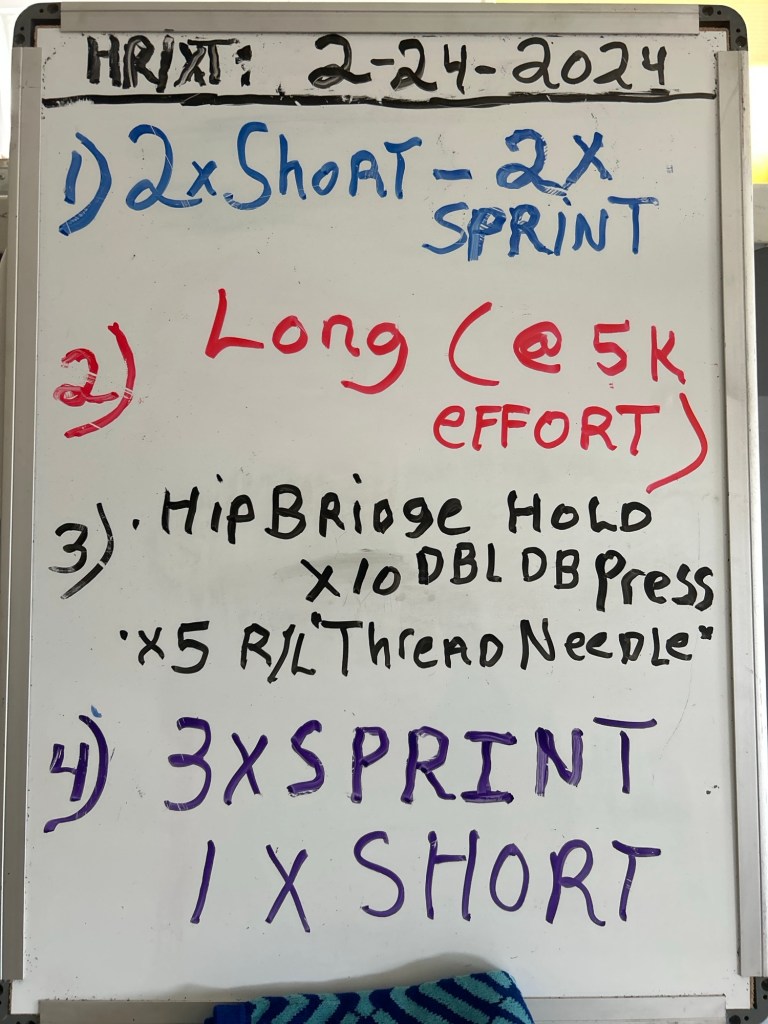 HR/XT: 2-24-2024
1) 2x SHORT - 2X
SPRINT
2) Long (@ 5K
EFFORT)
3) • HIP BRIDGE HOLD
X10 DBL DB Press
• X5 R/L "THREAD NEEDLE"
4) 3X SPRINT
1 X SHORT